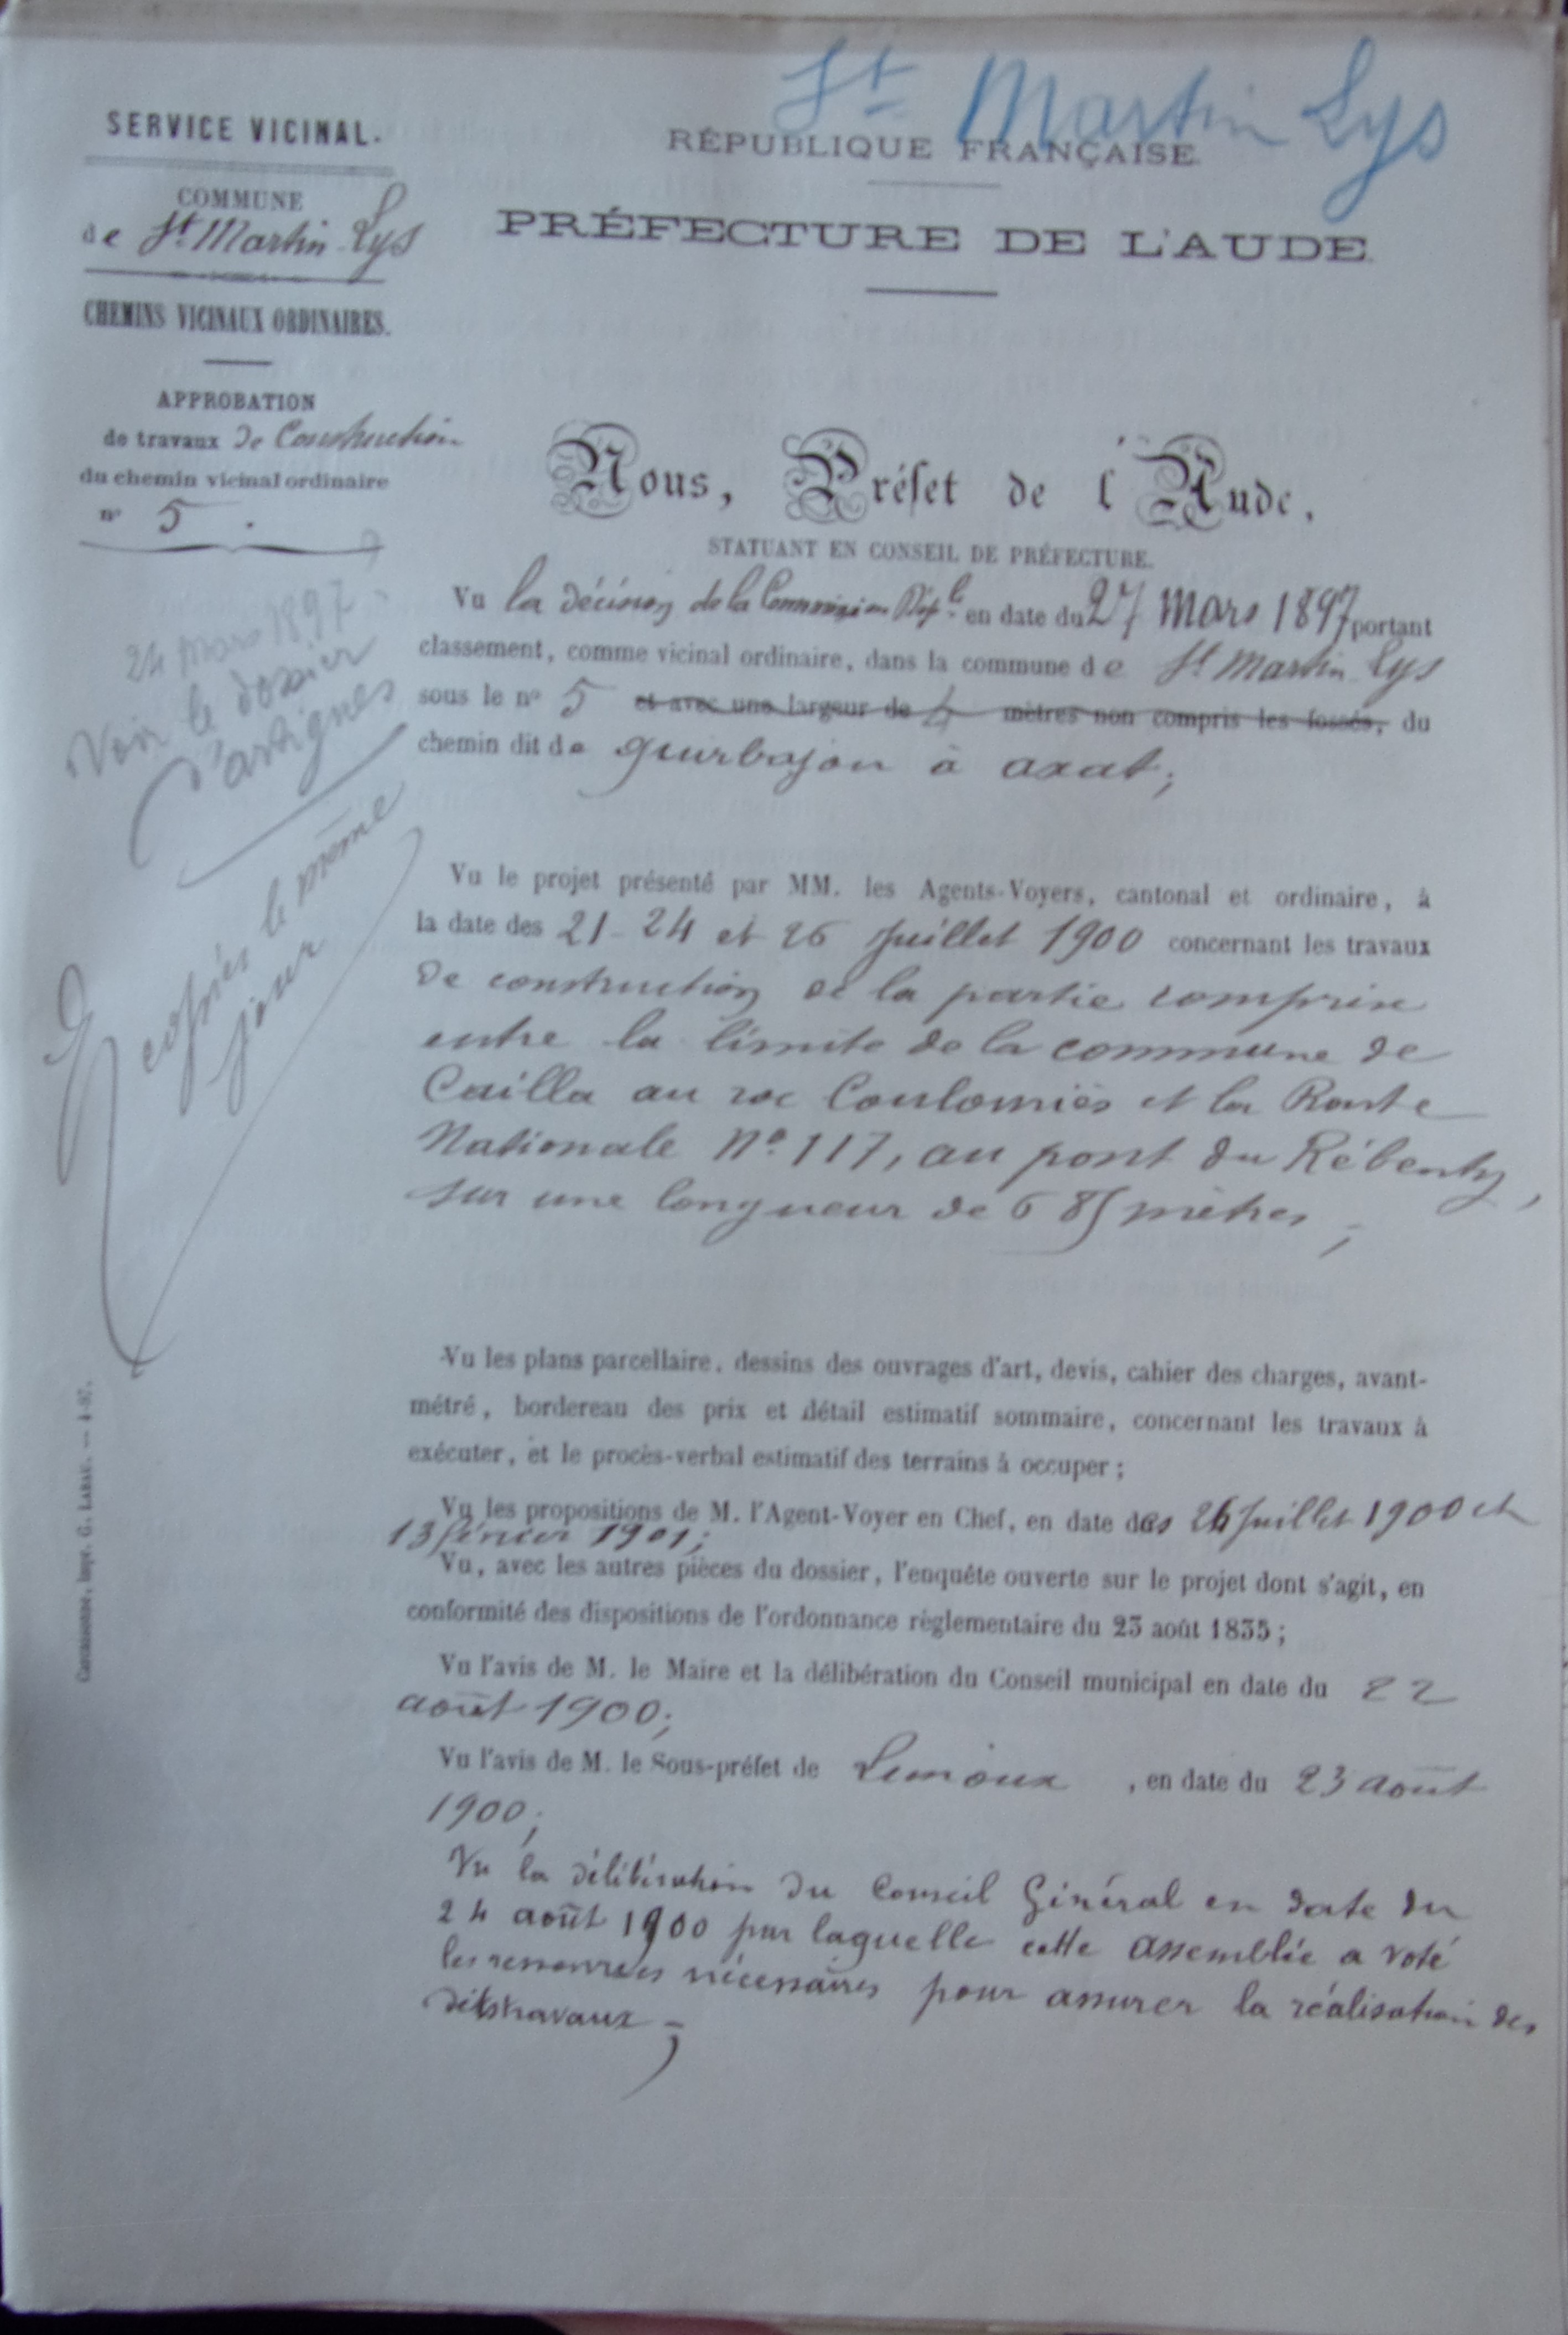 St Martin Lys
SERVICE VICINAL.
COMMUNE
de St Martin Lys
CHEMINS VICINAUX ORDINAIRES.
APPROBATION
de travaux de Construction
du chemin vicinal ordinaire
n° 5.
24 mars 1897
Voir le dossier
d'artigues
copiés le même
jour
Carcassonne, impr. G. LABAU. — 4-97.
RÉPUBLIQUE FRANÇAISE.
PRÉFECTURE DE L'AUDE.
Nous, Préfet de l'Aude,
STATUANT EN CONSEIL DE PRÉFECTURE.
Vu la décision de la Commission Déple en date du 27 Mars 1897 portant
classement, comme vicinal ordinaire, dans la commune de St Martin Lys
sous le n° 5 et avec une largeur de 4 mètres non compris les fossés, du
chemin dit de quirbajou à axat;
Vu le projet présenté par MM. les Agents-Voyers, cantonal et ordinaire, à
la date des 21 - 24 et 26 Juillet 1900 concernant les travaux
de construction de la partie comprise
entre la limite de la commune de
Cailla au roc Coulomiès et la Route
Nationale N° 117, au pont du Rébenty,
sur une longueur de 685 mètres;
Vu les plans parcellaire, dessins des ouvrages d'art, devis, cahier des charges, avant-
métré, bordereau des prix et détail estimatif sommaire, concernant les travaux à
exécuter, et le procès-verbal estimatif des terrains à occuper;
Vu les propositions de M. l'Agent-Voyer en Chef, en date des 26 Juillet 1900 et
13 février 1901;
Vu, avec les autres pièces du dossier, l'enquête ouverte sur le projet dont s'agit, en
conformité des dispositions de l'ordonnance règlementaire du 23 août 1835;
Vu l'avis de M. le Maire et la délibération du Conseil municipal en date du 22
août 1900;
Vu l'avis de M. le Sous-préfet de Limoux, en date du 23 août
1900;
Vu la délibération du Conseil Général en date du
24 août 1900 par laquelle cette assemblée a voté
les ressources nécessaires pour assurer la réalisation des
dits travaux;